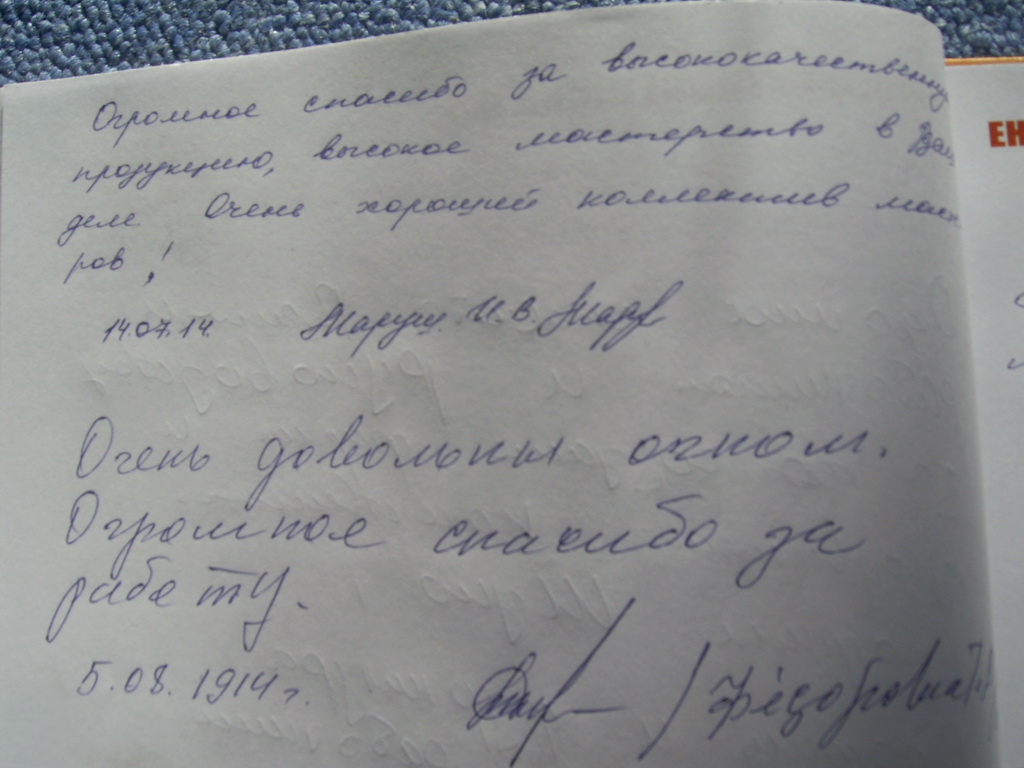 Огромное спасибо за высококачественну
продукцию, высокое мастерство в
деле Очень хороший коллектив маст
ров!
14.07.14. И.В
Очень довольны очком.
Огромное спасибо за
работу.
5.08.1914г. / Фёдоровна
ЕН